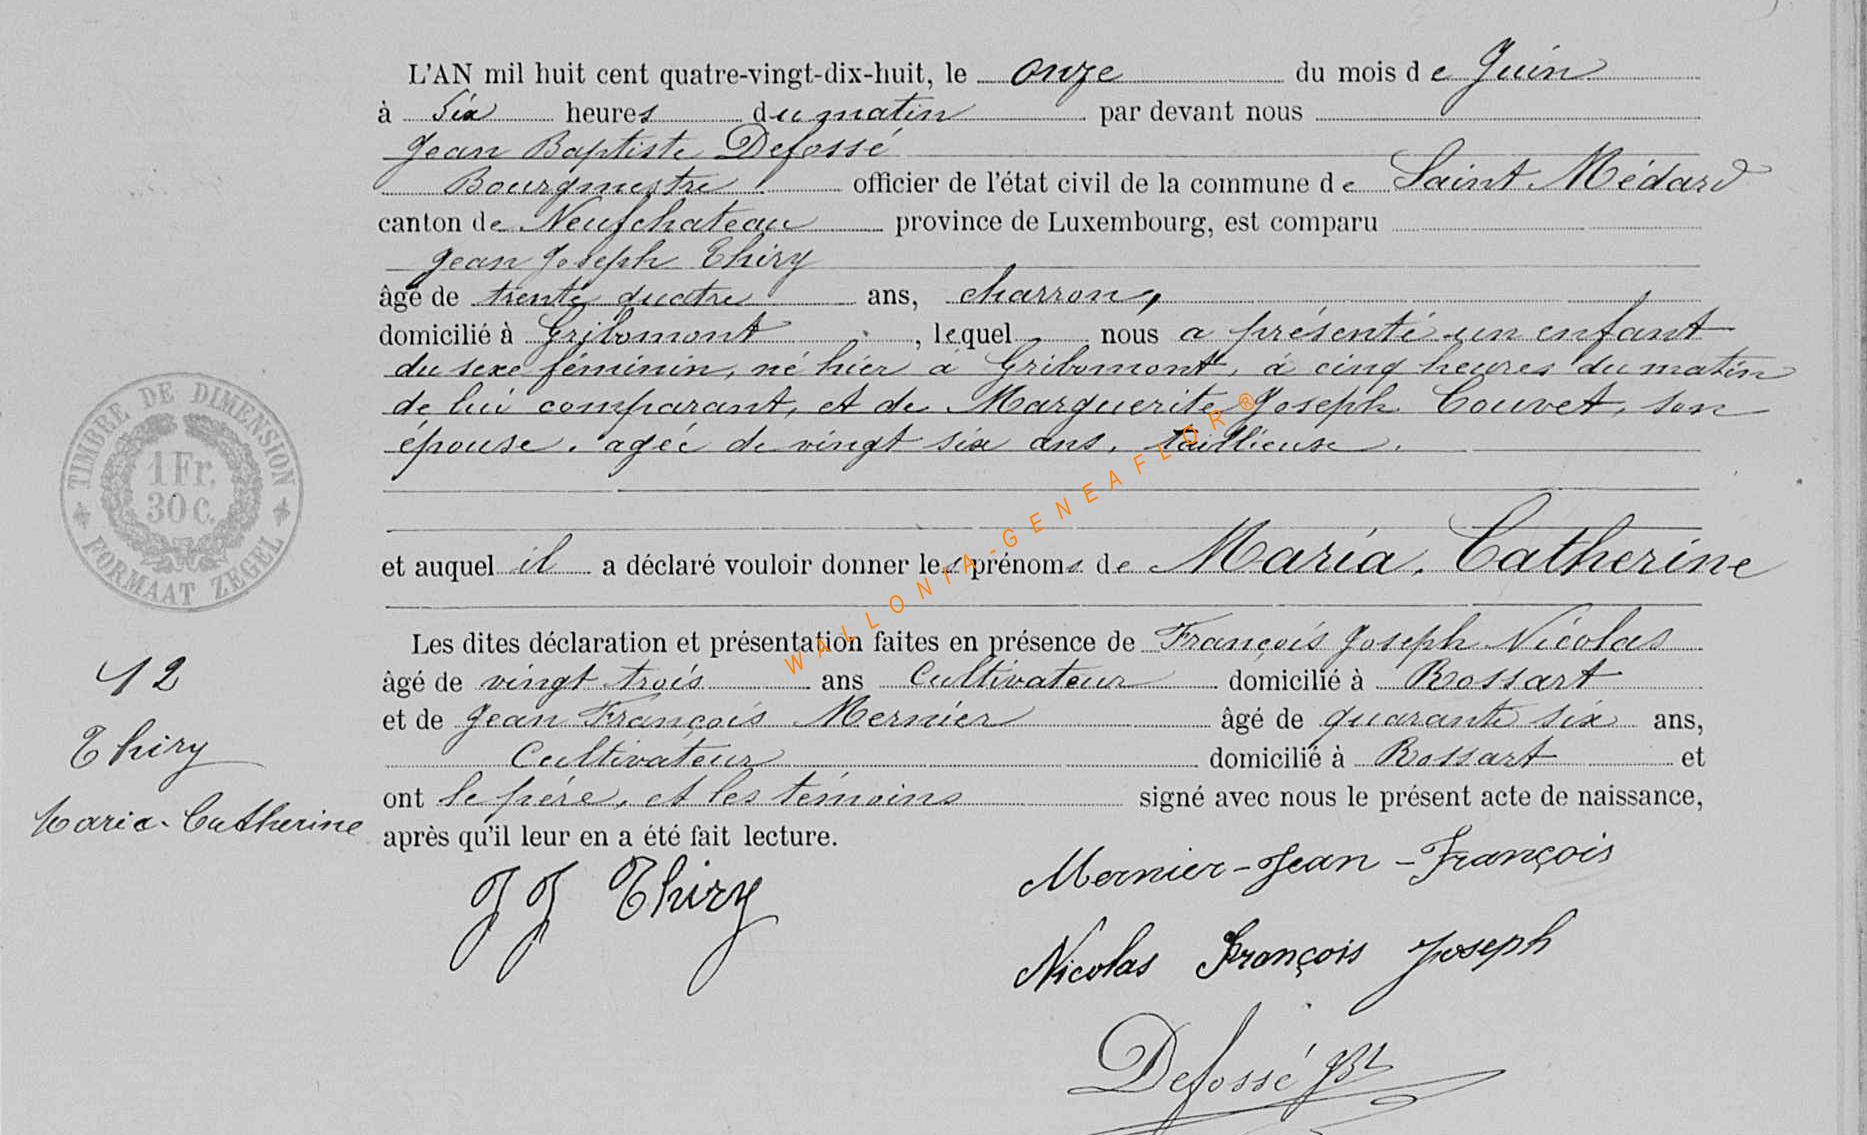 L'AN mil huit cent quatre-vingt-dix-huit, le onze du mois de Juin
à six heures du matin par devant nous
Jean Baptiste Defossé
Bourgmestre officier de l'état civil de la commune de Saint Médard
canton de Neufchateau province de Luxembourg, est comparu
Jean Joseph Thiry
âgé de trente quatre ans, charron,
domicilié à Gribomont, lequel nous a présenté un enfant
du sexe féminin, né hier à Gribomont, à cinq heures du matin
de lui comparant, et de Marguerite Joseph Couvet, son
épouse, agée de vingt six ans, taillieuse.
et auquel il a déclaré vouloir donner les prénoms de Maria, Catherine
Les dites déclaration et présentation faites en présence de François Joseph Nicolas
âgé de vingt trois ans Cultivateur domicilié à Rossart
et de Jean François Mernier âgé de quarante six ans,
Cultivateur domicilié à Rossart et
ont le père, et les témoins signé avec nous le présent acte de naissance,
après qu'il leur en a été fait lecture.
TIMBRE DE DIMENSION
1 Fr.
30 C.
FORMAAT ZEGEL
12
Thiry
Maria-Catherine
J J Thiry
Mernier-Jean-François
Nicolas François Joseph
Defossé JBt
WALLONIA-GENEAFLOR®